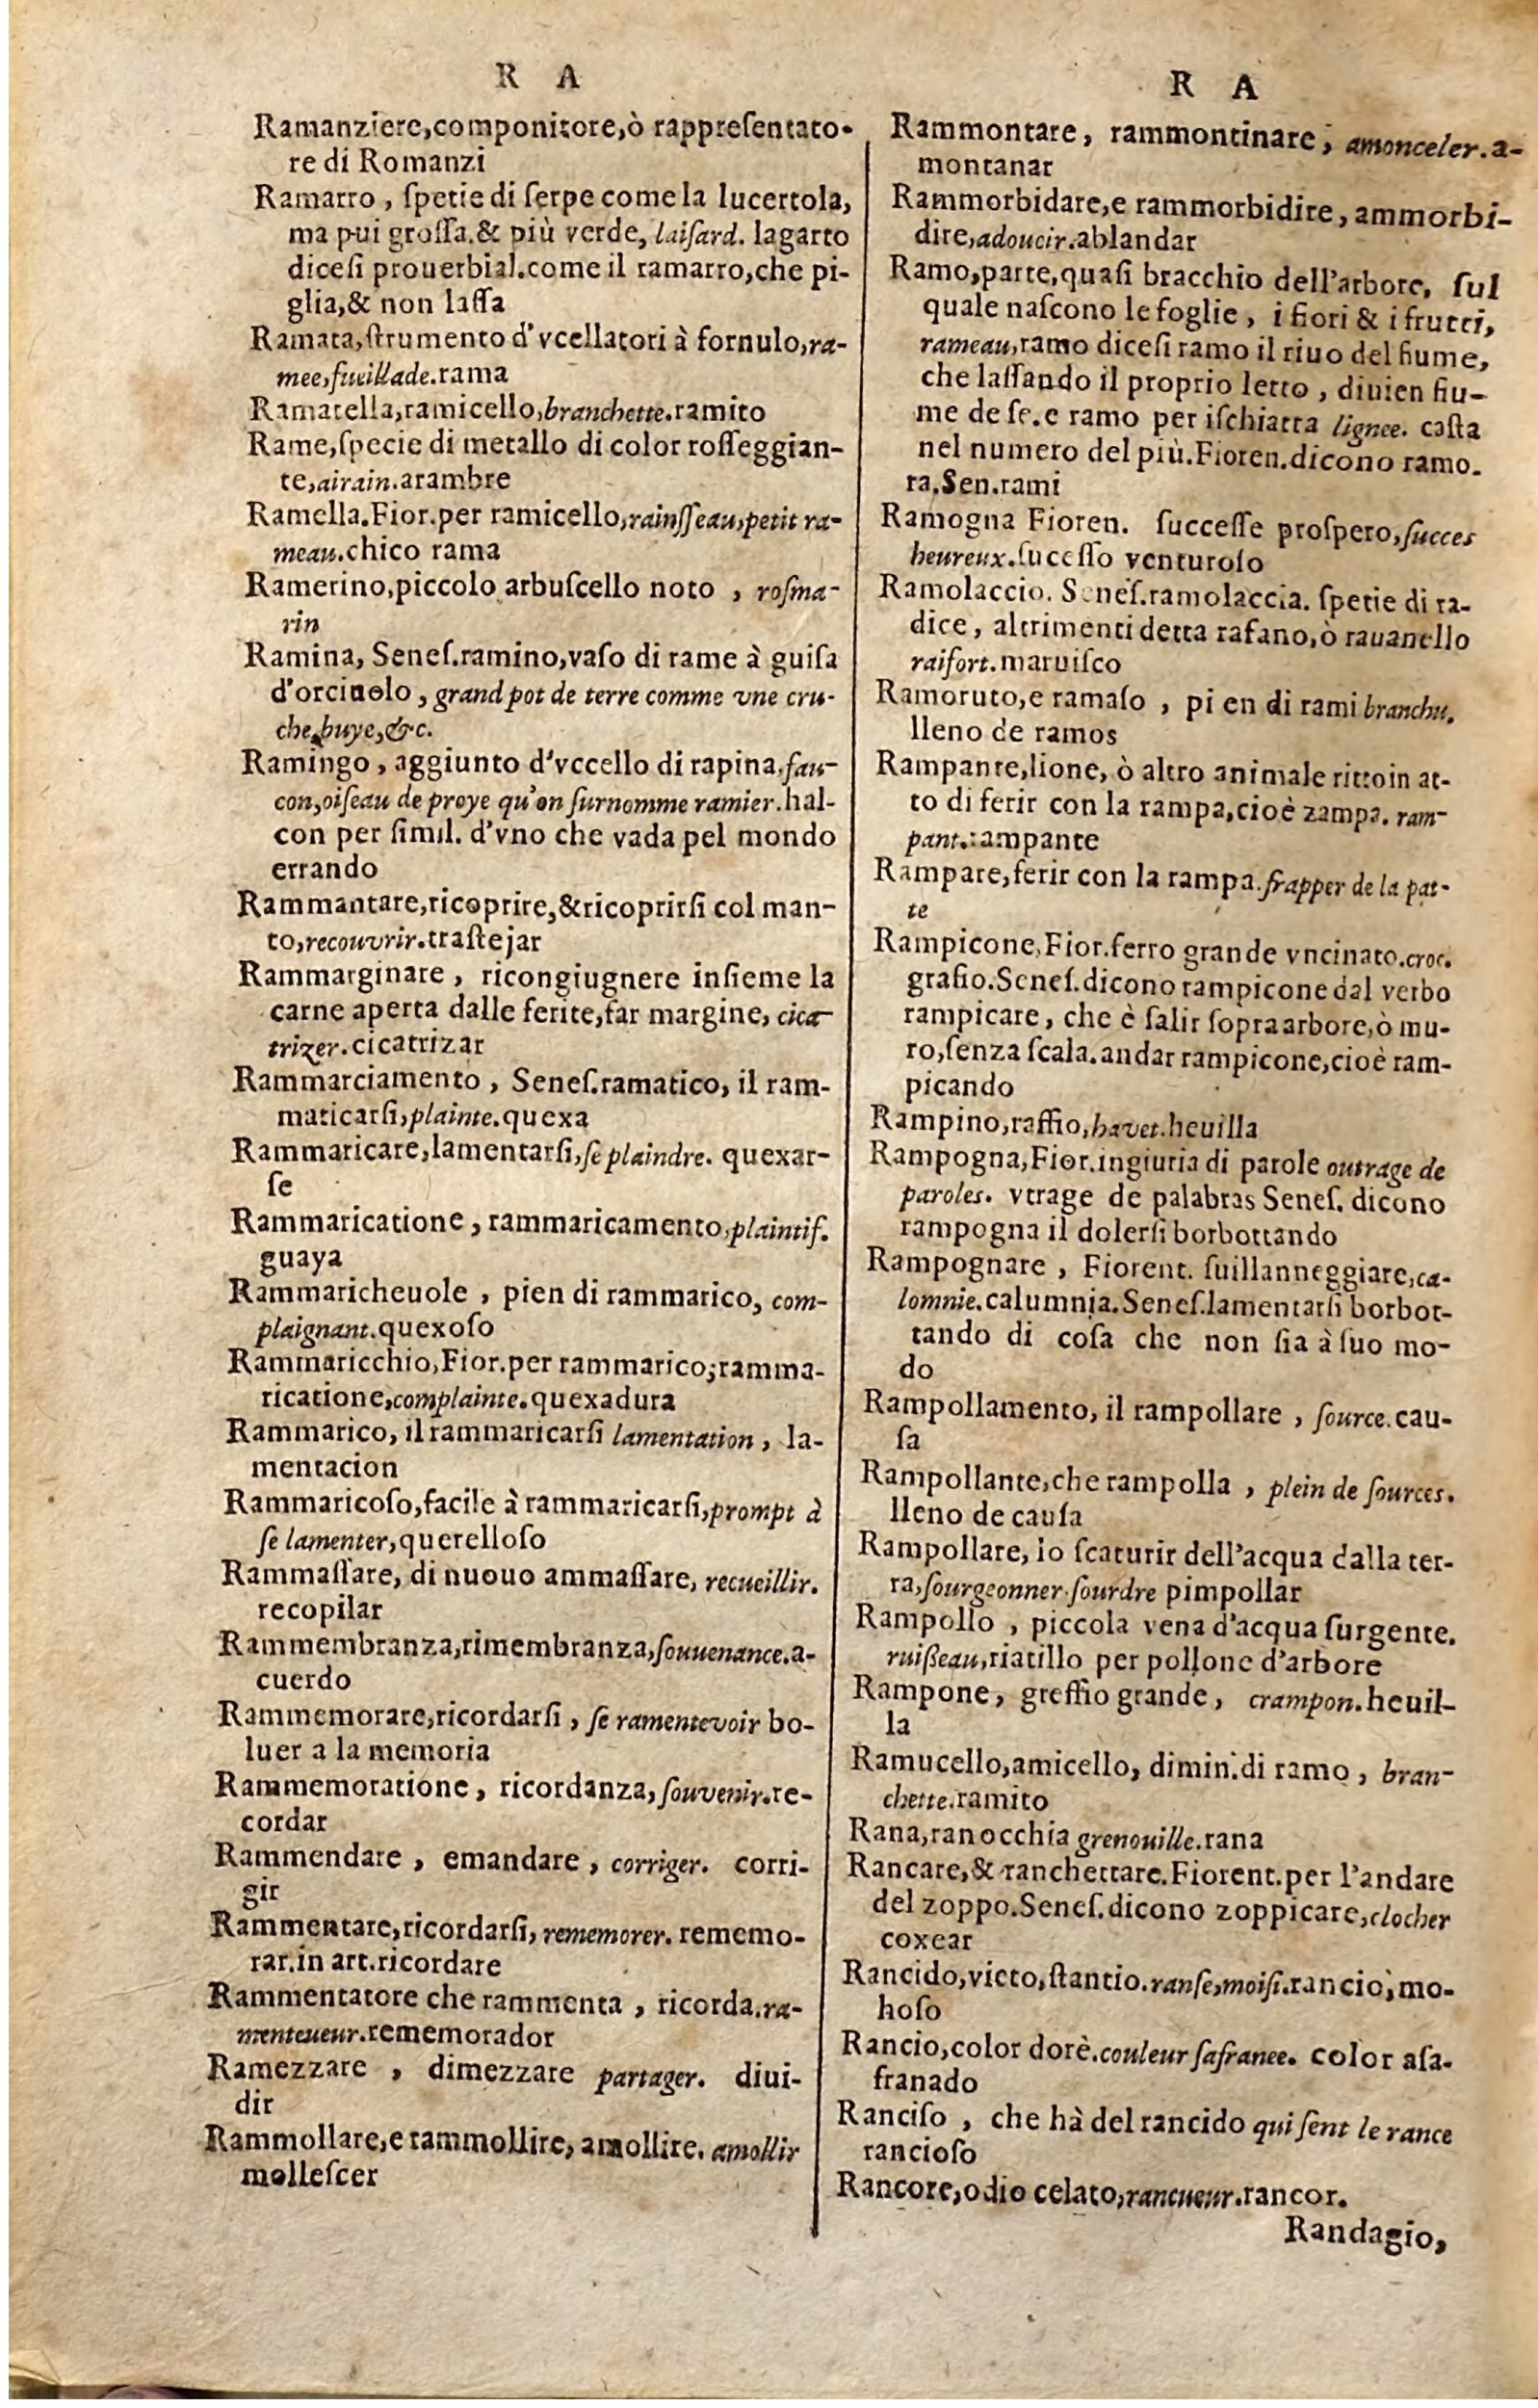 R A
Ramanziere,componitore,ò rappreſentato-
re di Romanzi
Ramarro , ſpetie di ſerpe come la lucertola,
ma pui groſſa.& più verde, laiſard. lagarto
diceſi prouerbial.come il ramarro,che pi-
glia,& non laſſa
Ramata,ſtrumento d'vcellatori à fornulo,ra-
mee,fueillade.rama
Ramatella,ramicello,branchette.ramito
Rame,ſpecie di metallo di color roſſeggian-
te,airain.arambre
Ramella.Fior.per ramicello,rainſſeau,petit ra-
meau.chico rama
Ramerino,piccolo arbuſcello noto , roſma-
rin
Ramina, Seneſ.ramino,vaſo di rame à guiſa
d'orciuolo , grand pot de terre comme vne cru-
che,buye,&c.
Ramingo , aggiunto d'vccello di rapina,fau-
con,oiſeau de proye qu'on ſurnomme ramier.hal-
con per ſimil. d'vno che vada pel mondo
errando
Rammantare,ricoprire,&ricoprirſi col man-
to,recouvrir.traſtejar
Rammarginare , ricongiugnere inſieme la
carne aperta dalle ferite,far margine, cica-
trizer.cicatrizar
Rammarciamento , Seneſ.ramatico, il ram-
maticarſi,plainte.quexa
Rammaricare,lamentarſi,ſe plaindre. quexar-
ſe
Rammaricatione , rammaricamento,plaintif.
guaya
Rammaricheuole , pien di rammarico, com-
plaignant.quexoſo
Rammaricchio,Fior.per rammarico;ramma-
ricatione,complainte.quexadura
Rammarico, il rammaricarſi lamentation , la-
mentacion
Rammaricoſo,facile à rammaricarſi,prompt à
ſe lamenter,querelloſo
Rammaſſare, di nuouo ammaſſare, recueillir.
recopilar
Rammembranza,rimembranza,ſouuenance.a-
cuerdo
Rammemorare,ricordarſi , ſe ramentevoir bo-
luer a la memoria
Rammemoratione , ricordanza,ſouvenir.re-
cordar
Rammendare , emandare , corriger. corri-
gir
Rammentare,ricordarſi, rememorer. rememo-
rar.in art.ricordare
Rammentatore che rammenta , ricorda.ra-
menteueur.rememorador
Ramezzare , dimezzare partager. diui-
dir
Rammollare,e rammollire, amollire. amollir
molleſcer
R A
Rammontare, rammontinare, amonceler.a-
montanar
Rammorbidare,e rammorbidire, ammorbi-
dire,adoucir.ablandar
Ramo,parte,quaſi bracchio dell'arbore, ſul
quale naſcono le foglie , i fiori & i frutti,
rameau,ramo diceſi ramo il riuo del fiume,
che laſſando il proprio letto , diuien fiu-
me de ſe.e ramo per iſchiatta lignee. caſta
nel numero del più.Fioren.dicono ramo-
ra.Sen.rami
Ramogna Fioren. ſucceſſe proſpero,ſucces
heureux.ſuceſſo venturoſo
Ramolaccio. Seneſ.ramolaccia. ſpetie di ra-
dice, altrimenti detta rafano,ò rauanello
raifort.maruiſco
Ramoruto,e ramaſo , pi en di rami branchu.
lleno de ramos
Rampante,lione, ò altro animale ritto in at-
to di ferir con la rampa,cioè zampa. ram-
pant.rampante
Rampare,ferir con la rampa.frapper de la pat-
te
Rampicone,Fior.ferro grande vncinato.croc.
grafio.Seneſ.dicono rampicone dal verbo
rampicare, che è ſalir ſopra arbore,ò mu-
ro,ſenza ſcala.andar rampicone,cioè ram-
picando
Rampino,raffio,havet.heuilla
Rampogna,Fior.ingiuria di parole outrage de
paroles. vtrage de palabras Seneſ. dicono
rampogna il dolerſi borbottando
Rampognare , Fiorent. ſuillanneggiare,ca-
lomnie.calumnia.Seneſ.lamentarſi borbot-
tando di coſa che non ſia à ſuo mo-
do
Rampollamento, il rampollare , ſource.cau-
ſa
Rampollante,che rampolla , plein de ſources.
lleno de cauſa
Rampollare, lo ſcaturir dell'acqua dalla ter-
ra,ſourgeonner.ſourdre pimpollar
Rampollo , piccola vena d'acqua ſurgente.
ruißeau,riatillo per pollone d'arbore
Rampone, greffio grande, crampon.heuil-
la
Ramucello,amicello, dimin.di ramo , bran-
chette.ramito
Rana,ranocchia grenouille.rana
Rancare,& ranchettare.Fiorent.per l'andare
del zoppo.Seneſ.dicono zoppicare,clocher
coxear
Rancido,vieto,ſtantio.ranſe,moiſi.rancio,mo-
hoſo
Rancio,color dorè.couleur ſafranee. color aſa-
franado
Ranciſo , che hà del rancido qui ſent le rance
rancioſo
Rancore,odio celato,rancueur.rancor.
Randagio,